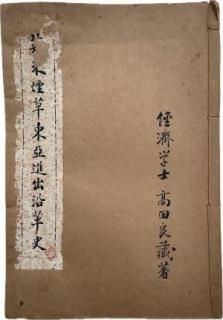 米煙草東亞進出沿革史
經濟学士 高田良藏著